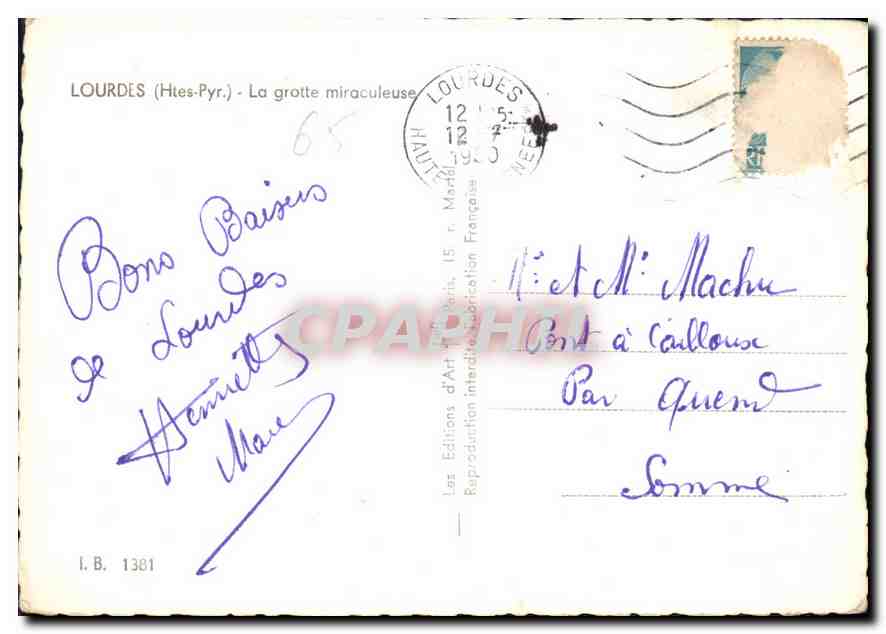 LOURDES (Htes-Pyr.) - La grotte miraculeuse
65
LOURDES
12
12
HAUTE
Bons Baisers
de Lourdes
Henriette
Marc
Les Editions d'Art Paris, 15 r. Martel
Reproduction interdite Fabrication Française
CPAPHIL
et Mr Machu
Pont à Cailloux
Par Quend
Somme
I. B. 1381